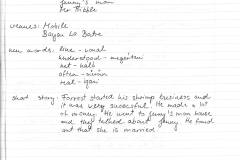 Jenny's man
Mr Hibble
venues: Mobile
Bayou La Batre
new words: true - vonal
understood - megérteni
net - háló
often -
real - igazi
short story: Forrest started his shrimp business and
it was very succesful. He made a lot
of money. He went to Jenny's mom house
and they talked about Jenny. He found
out that she is married